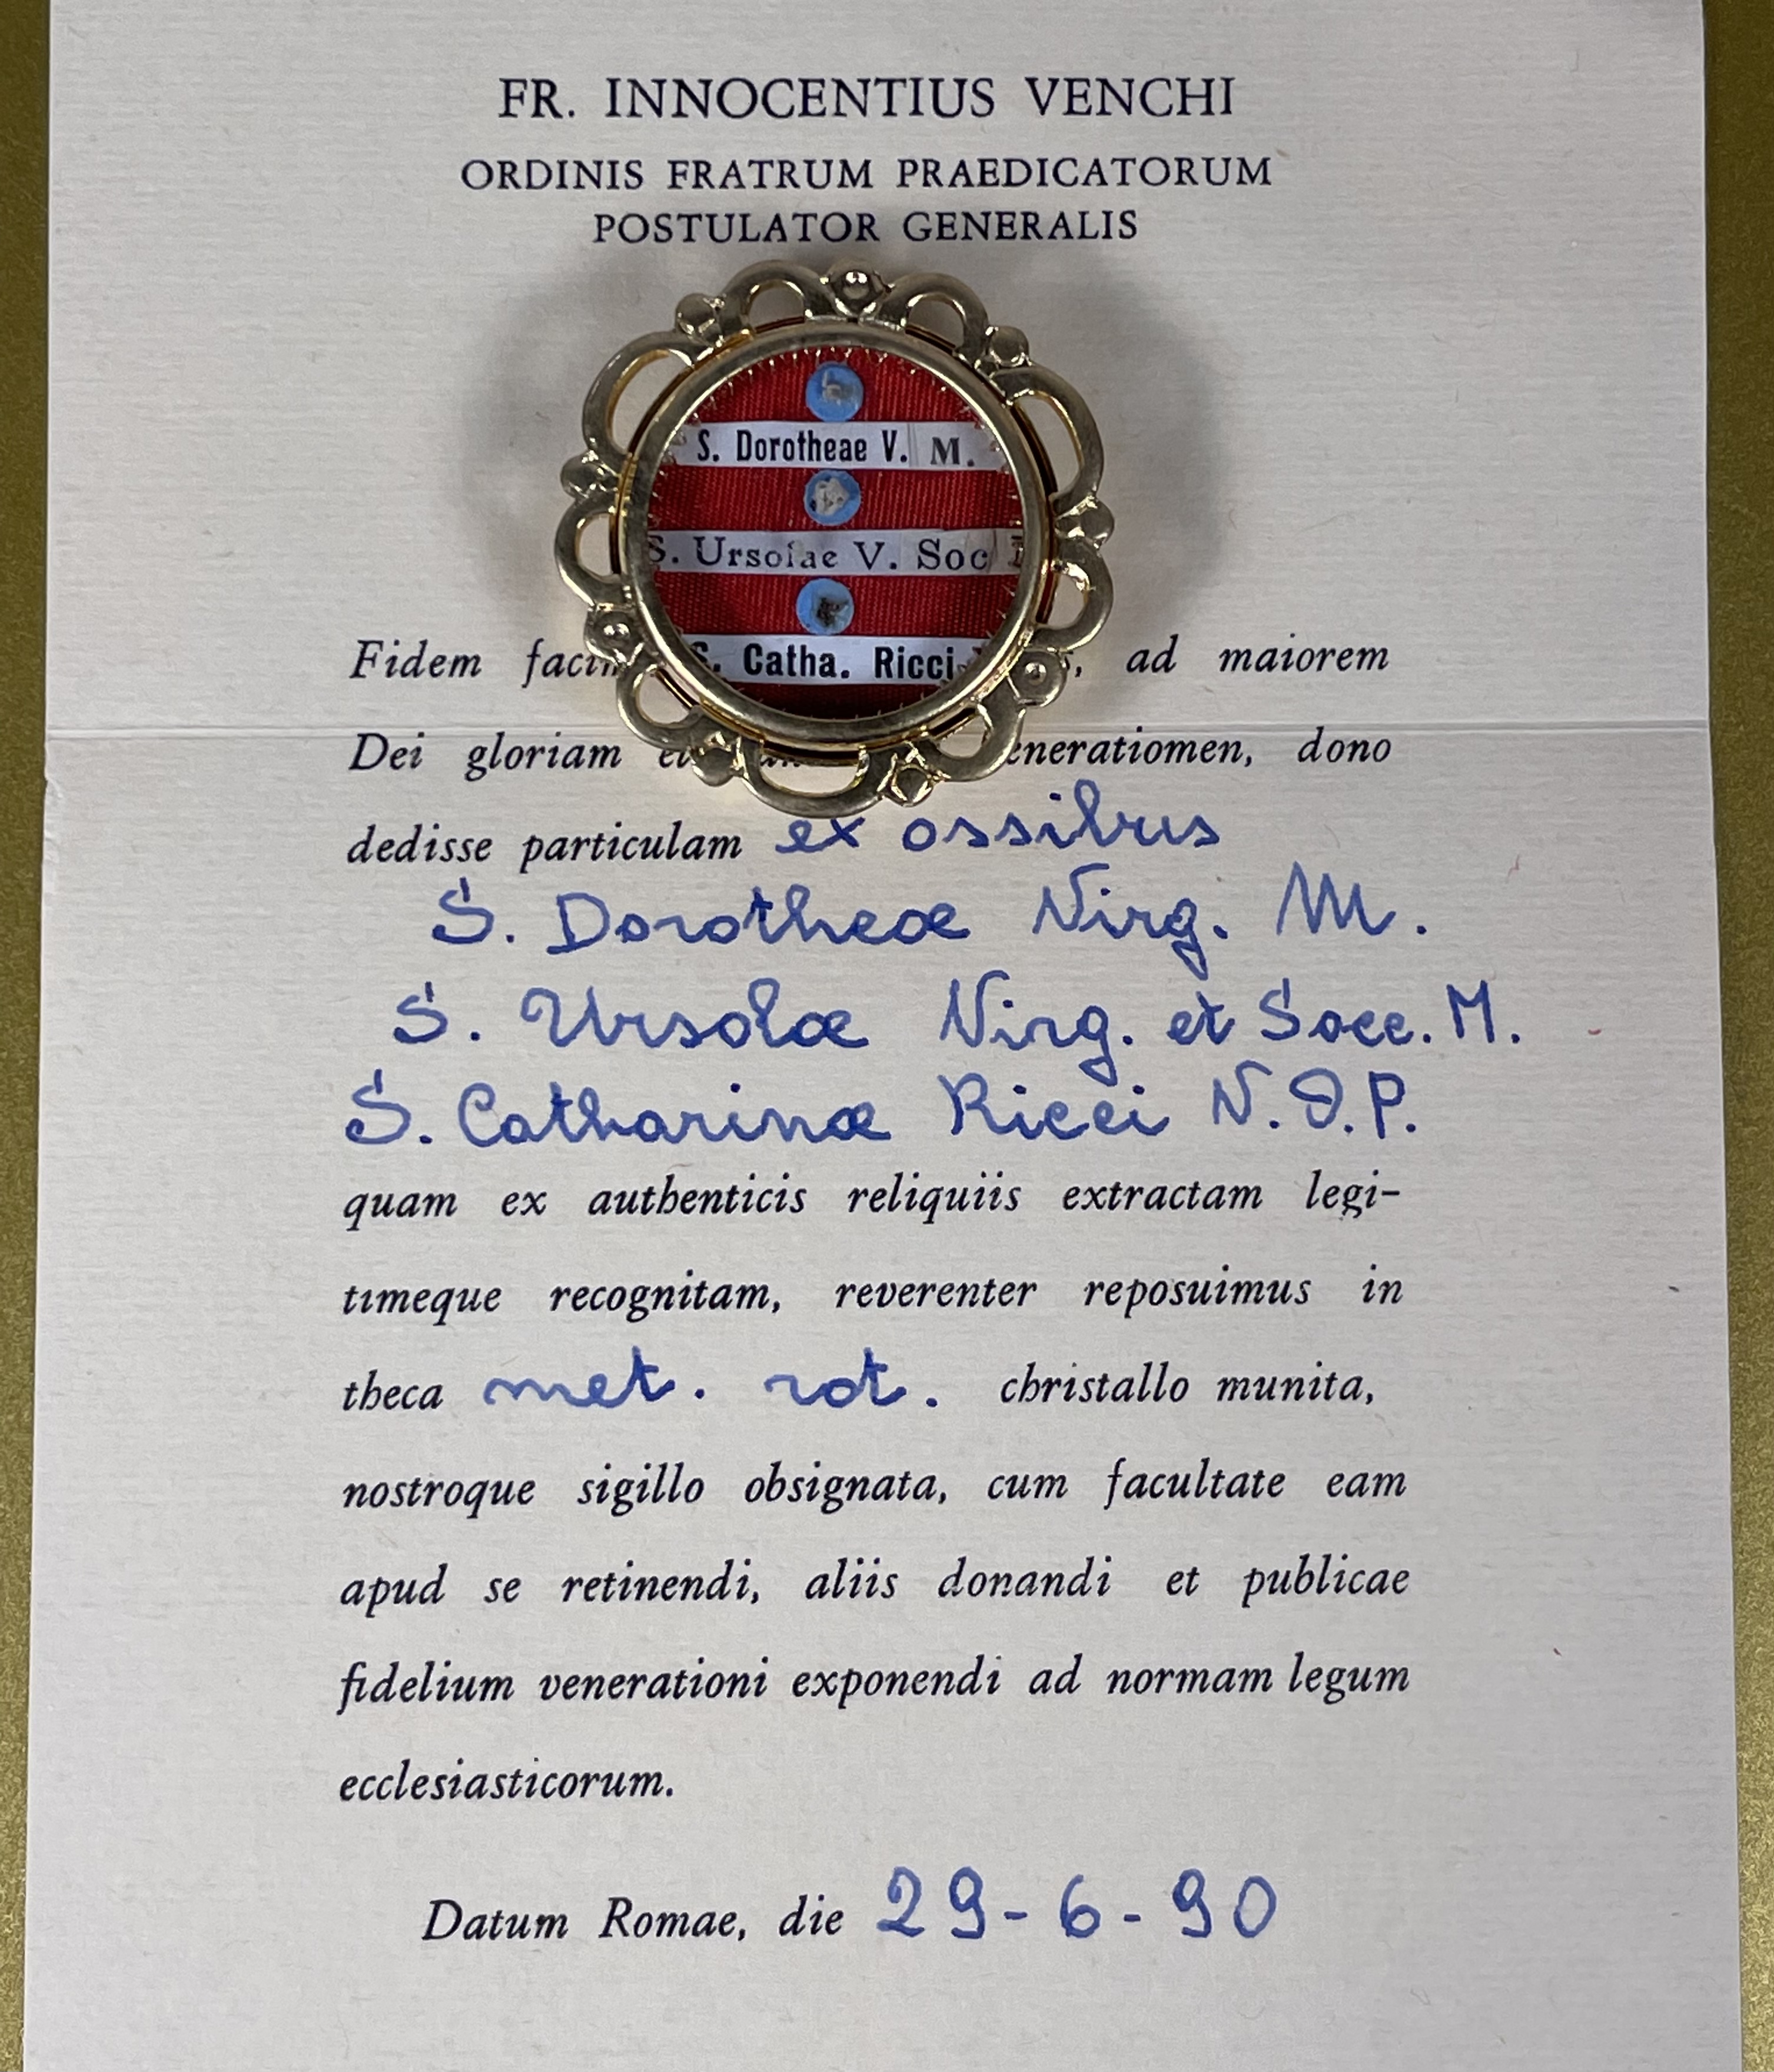 FR. INNOCENTIUS VENCHI
ORDINIS FRATRUM PRAEDICATORUM
POSTULATOR GENERALIS
S. Dorotheae V. M.
S. Ursolae V. Soc
S. Catha. Ricci
Fidem ad maiorem
Dei gloriam dono
dedisse particulam ex ossibus
S. Dorotheæ Virg. M.
S. Ursolæ Virg. et Socc. M.
S. Catharinæ Ricci V.O.P.
quam ex authenticis reliquiis extractam legi-
timeque recognitam, reverenter reposuimus in
theca met. rot. christallo munita,
nostroque sigillo obsignata, cum facultate eam
apud se retinendi, aliis donandi et publicae
fidelium venerationi exponendi ad normam legum
ecclesiasticorum.
Datum Romae, die 29-6-90